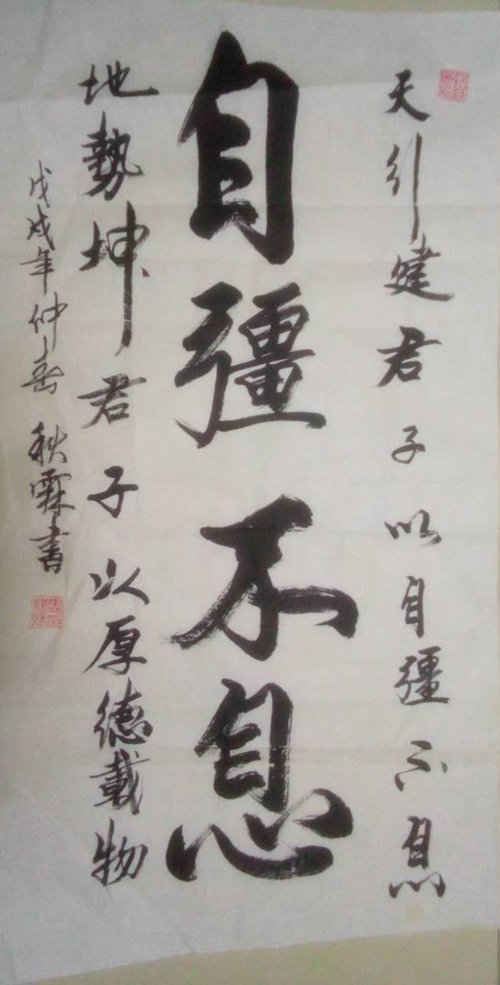 天行建君子以自彊不息
自彊不息
地勢坤君子以厚德載物
戊戌年仲春 秋霖書